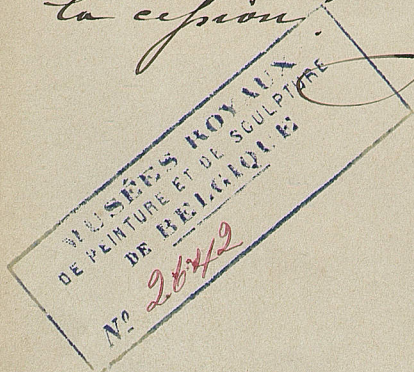 la cession.
MUSÉES ROYAUX
DE PEINTURE ET DE SCULPTURE
DE BELGIQUE
No 2642